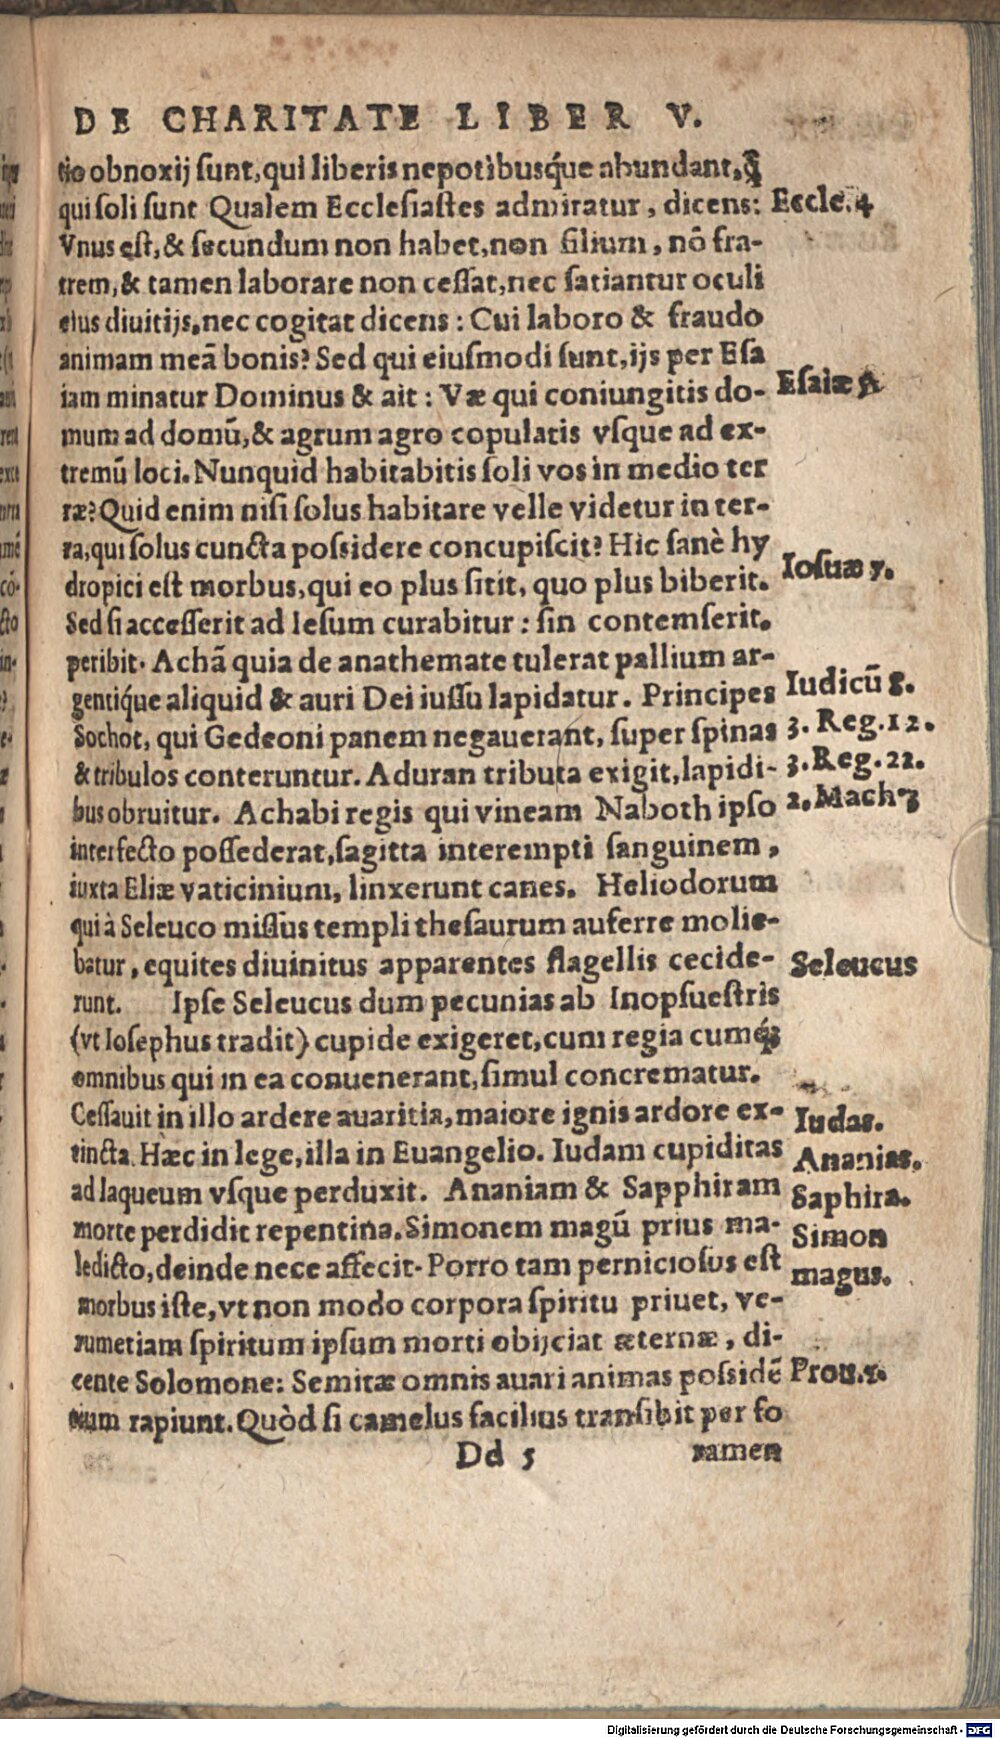 DE CHARITATE LIBER V.
tio obnoxij sunt, qui liberis nepotibusq́ue abundant, ꝙ̃
qui soli sunt Qualem Ecclesiastes admiratur, dicens:
Eccle. 4
Vnus est, & secundum non habet, non filium, nō fra-
trem, & tamen laborare non cessat, nec satiantur oculi
eius diuitijs, nec cogitat dicens: Cui laboro & fraudo
animam meā bonis? Sed qui eiusmodi sunt, ijs per Esa
iam minatur Dominus & ait: Væ qui coniungitis do-
Esaiæ 5.
mum ad domū, & agrum agro copulatis vsque ad ex-
tremū loci. Nunquid habitabitis soli vos in medio ter
ræ? Quid enim nisi solus habitare velle videtur in ter-
ra, qui solus cuncta possidere concupiscit? Hic sanè hy
dropici est morbus, qui eo plus sitit, quo plus biberit.
Iosuæ 7.
Sed si accesserit ad Iesum curabitur: sin contemserit.
peribit. Achā quia de anathemate tulerat pallium ar-
gentiq́ue aliquid & auri Dei iussu lapidatur. Principes
Iudicū 8.
Sochot, qui Gedeoni panem negauerant, super spinas
3. Reg. 12.
& tribulos conteruntur. Aduran tributa exigit, lapidi-
3. Reg. 22.
bus obruitur. Achabi regis qui vineam Naboth ipso
2. Mach 3
interfecto possederat, sagitta interempti sanguinem,
iuxta Eliæ vaticinium, linxerunt canes. Heliodorum
qui à Seleuco missus templi thesaurum auferre molie-
batur, equites diuinitus apparentes flagellis cecide-
Seleucus
runt. Ipse Seleucus dum pecunias ab Inopsuestris
(vt Iosephus tradit) cupide exigeret, cum regia cumq́ꝫ
omnibus qui in ea conuenerant, simul concrematur.
Cessauit in illo ardere auaritia, maiore ignis ardore ex-
Iudas.
tincta. Hæc in lege, illa in Euangelio. Iudam cupiditas
Ananias.
ad laqueum vsque perduxit. Ananiam & Sapphiram
Saphira.
morte perdidit repentina. Simonem magū prius ma-
Simon
ledicto, deinde nece affecit. Porro tam perniciosus est
magus.
morbus iste, vt non modo corpora spiritu priuet, ve-
rumetiam spiritum ipsum morti obijciat æternæ, di-
cente Solomone: Semitæ omnis auari animas possidē
Prou. 1.
tium rapiunt. Quòd si camelus facilius transibit per fo
Dd 5 ramen
Digitalisierung gefördert durch die Deutsche Forschungsgemeinschaft - DFG